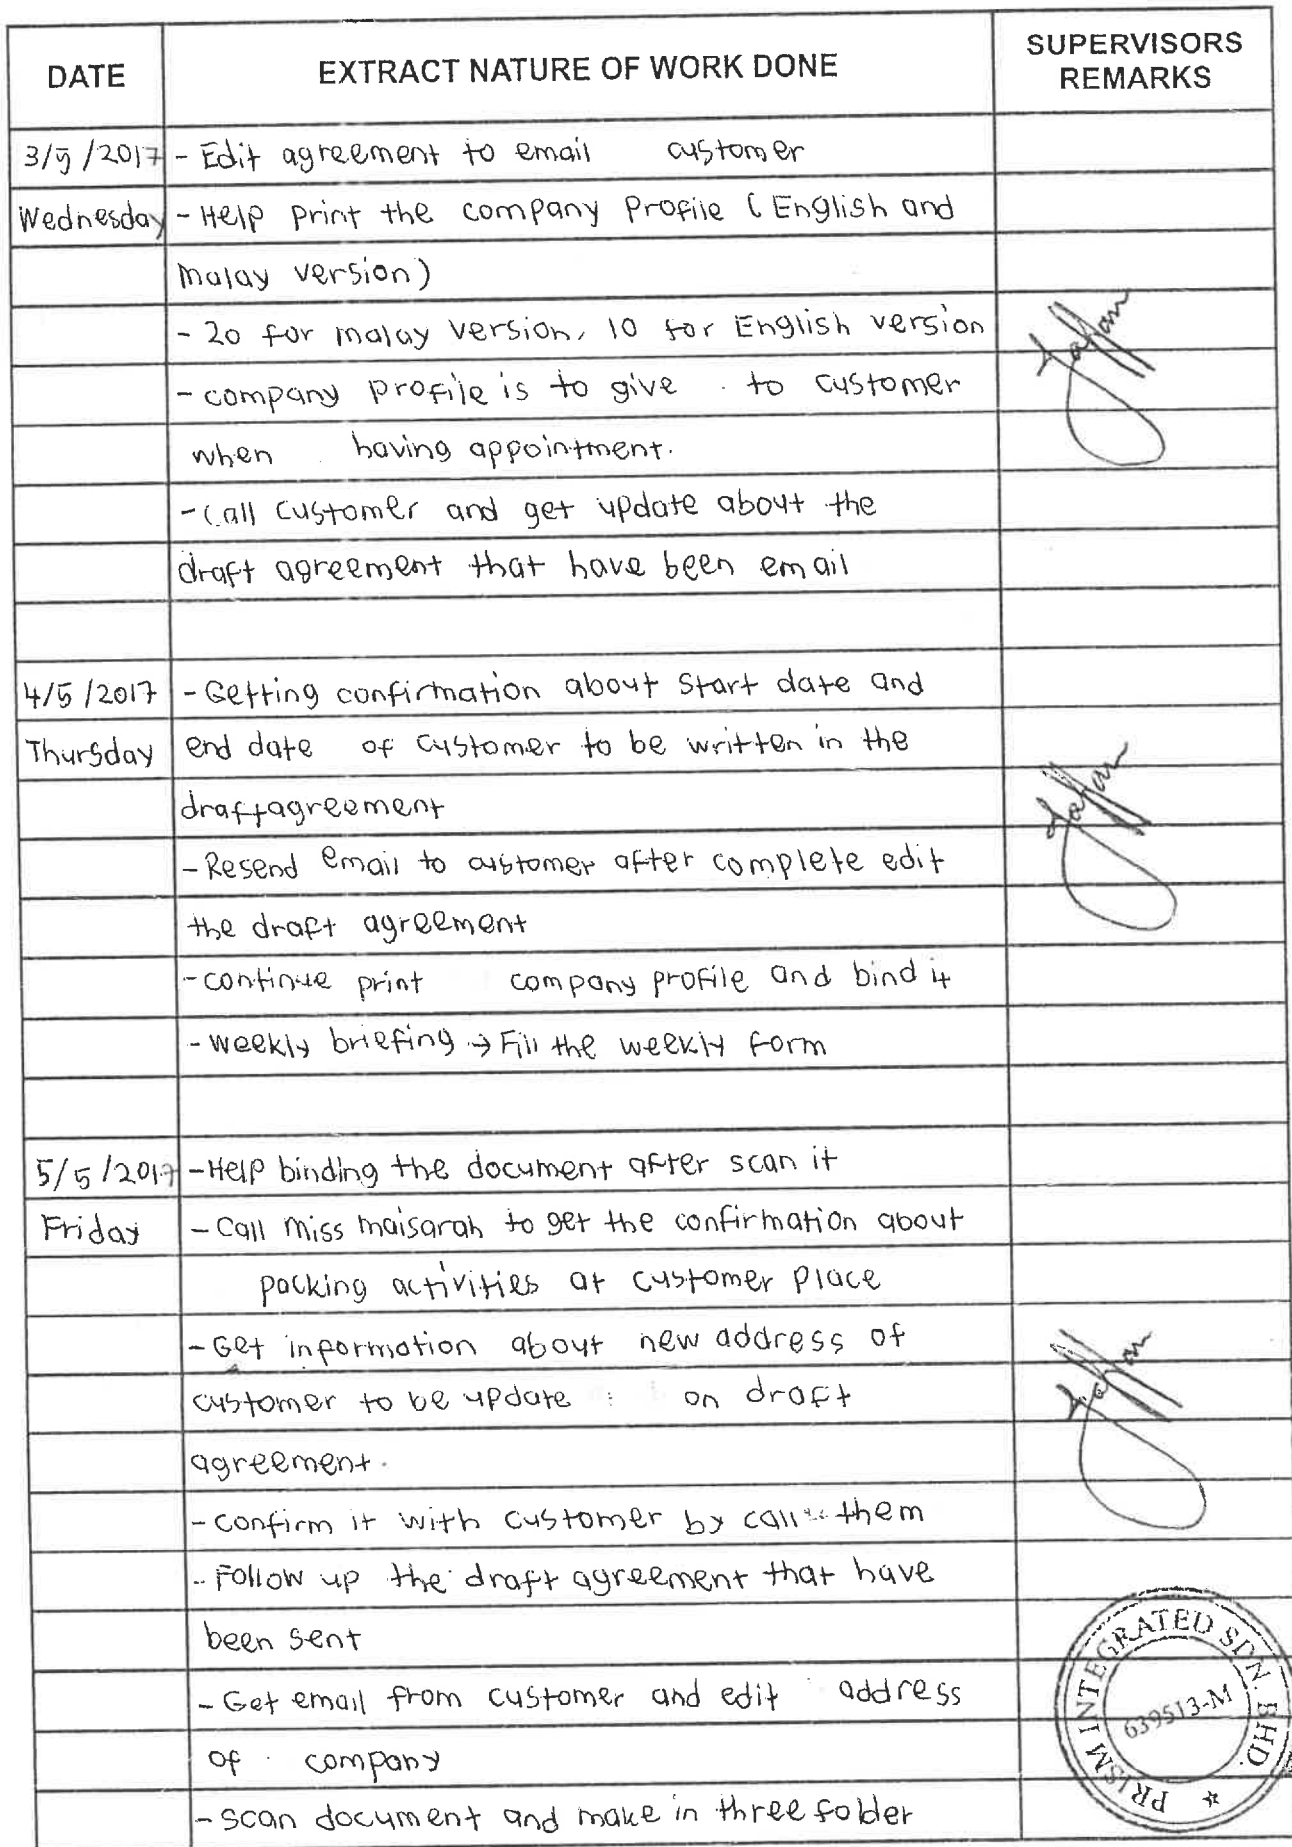 DATE EXTRACT NATURE OF WORK DONE SUPERVISORS REMARKS
3/5/2017 - Edit agreement to email customer
Wednesday - Help print the company Profile (English and
malay version)
- 20 for malay version, 10 for English version
- company profile is to give to customer
when having appointment.
- Call customer and get update about the
draft agreement that have been email
4/5/2017 - Getting confirmation about start date and
Thursday end date of customer to be written in the
draft agreement
- Resend email to customer after complete edit
the draft agreement
- continue print company profile and bind it
- weekly briefing → Fill the weekly form
5/5/2017 - Help binding the document after scan it
Friday - Call miss maisarah to get the confirmation about
packing activities at customer place
- Get information about new address of
customer to be update on draft
agreement.
- confirm it with customer by call them
- Follow up the draft agreement that have
been sent
- Get email from customer and edit address
of company
- scan document and make in three folder
PRISM INTEGRATED SDN. BHD.
639513-M